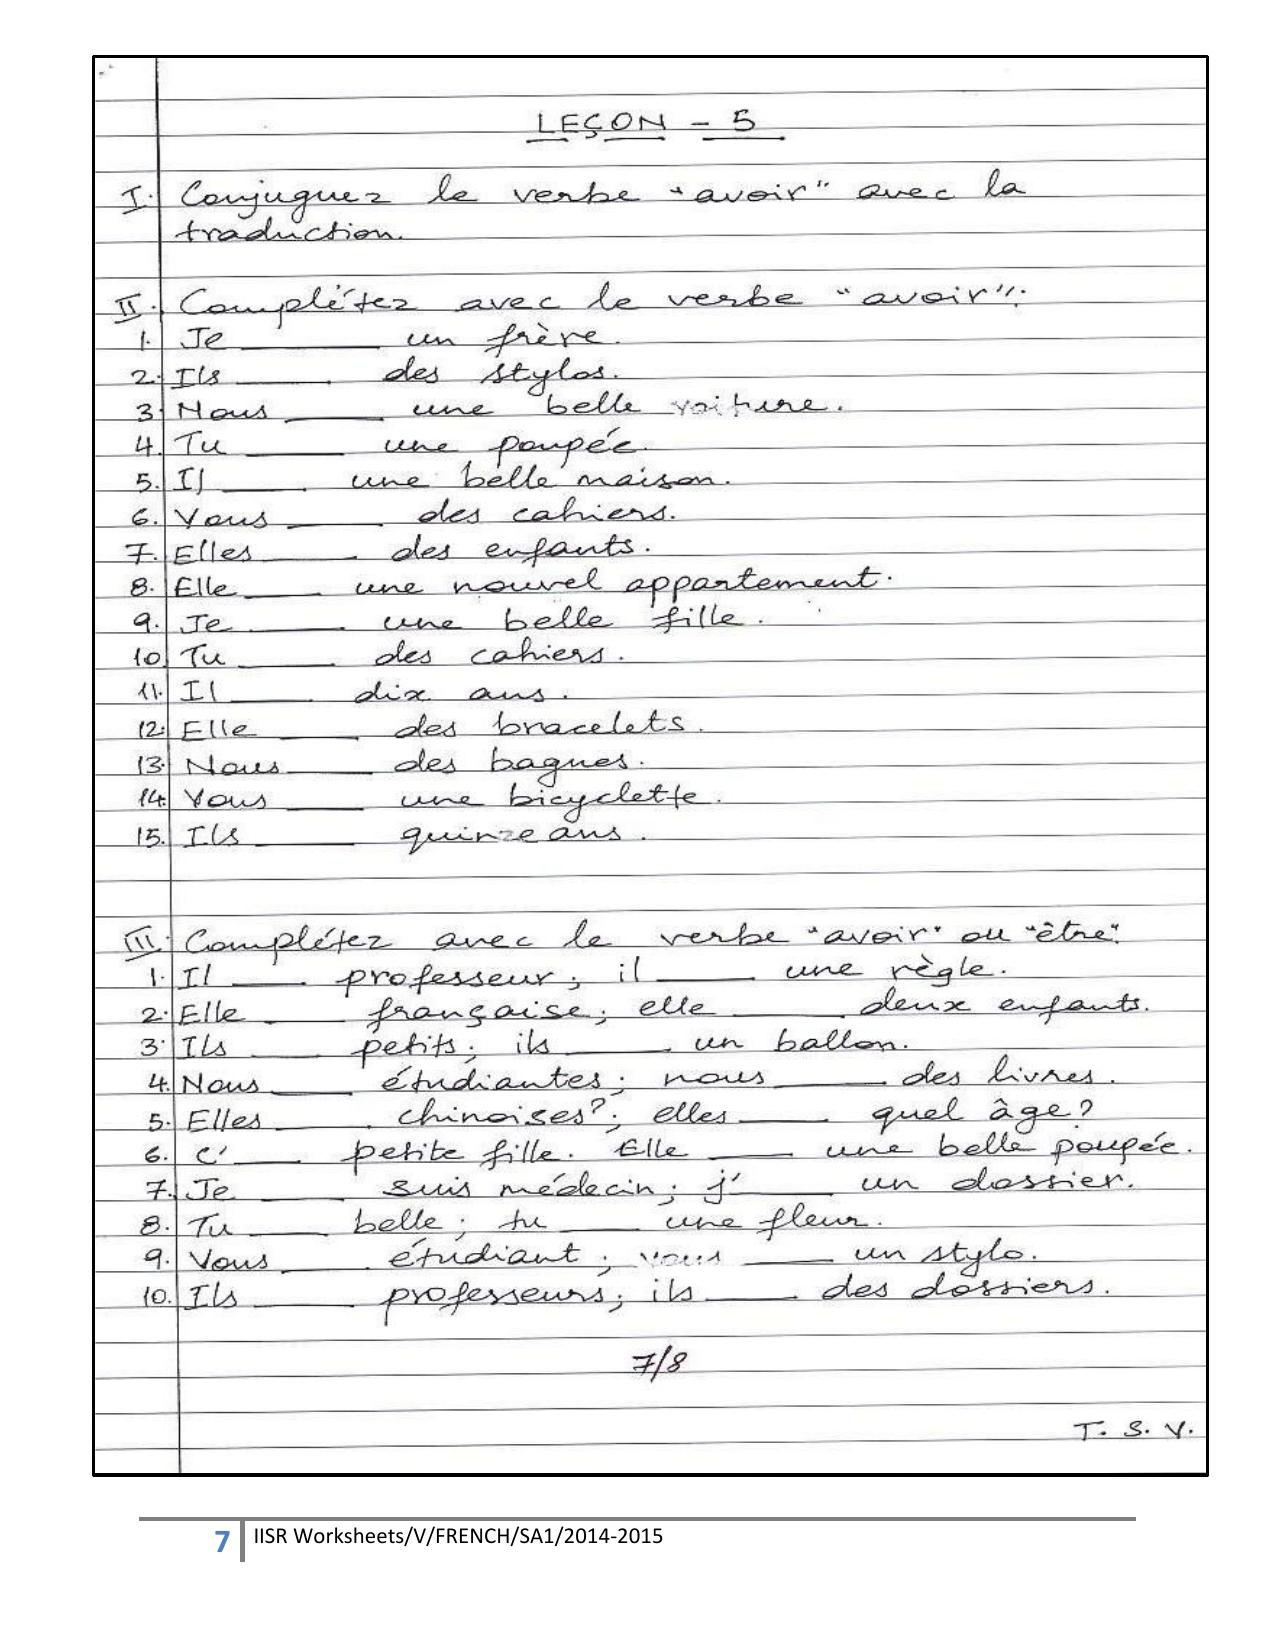 LEÇON - 5
I. Conjuguez le verbe "avoir" avec la
traduction.
II. Complétez avec le verbe "avoir":
1. Je ______ un frère.
2. Ils ______ des stylos.
3. Nous ______ une belle voiture.
4. Tu ______ une poupée.
5. Il ______ une belle maison.
6. Vous ______ des cahiers.
7. Elles ______ des enfants.
8. Elle ______ une nouvel appartement.
9. Je ______ une belle fille.
10. Tu ______ des cahiers.
11. Il ______ dix ans.
12. Elle ______ des bracelets.
13. Nous ______ des bagues.
14. Vous ______ une bicyclette.
15. Ils ______ quinze ans.
III. Complétez avec le verbe "avoir" ou "être".
1. Il ______ professeur; il ______ une règle.
2. Elle ______ française; elle ______ deux enfants.
3. Ils ______ petits; ils ______ un ballon.
4. Nous ______ étudiantes; nous ______ des livres.
5. Elles ______ chinoises?; elles ______ quel âge?
6. C' ______ petite fille. Elle ______ une belle poupée.
7. Je ______ suis médecin; j' ______ un dossier.
8. Tu ______ belle; tu ______ une fleur.
9. Vous ______ étudiant; vous ______ un stylo.
10. Ils ______ professeurs; ils ______ des dossiers.
7/8
T. S. V.
7 IISR Worksheets/V/FRENCH/SA1/2014-2015